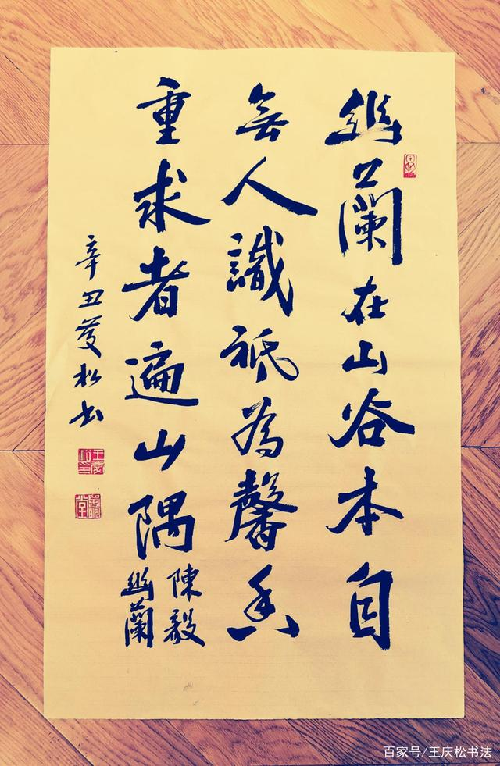 幽蘭在山谷本自
無人識祇為馨香
重求者遍山隅
陳毅
幽蘭
辛丑慶松书
百家号/王庆松书法